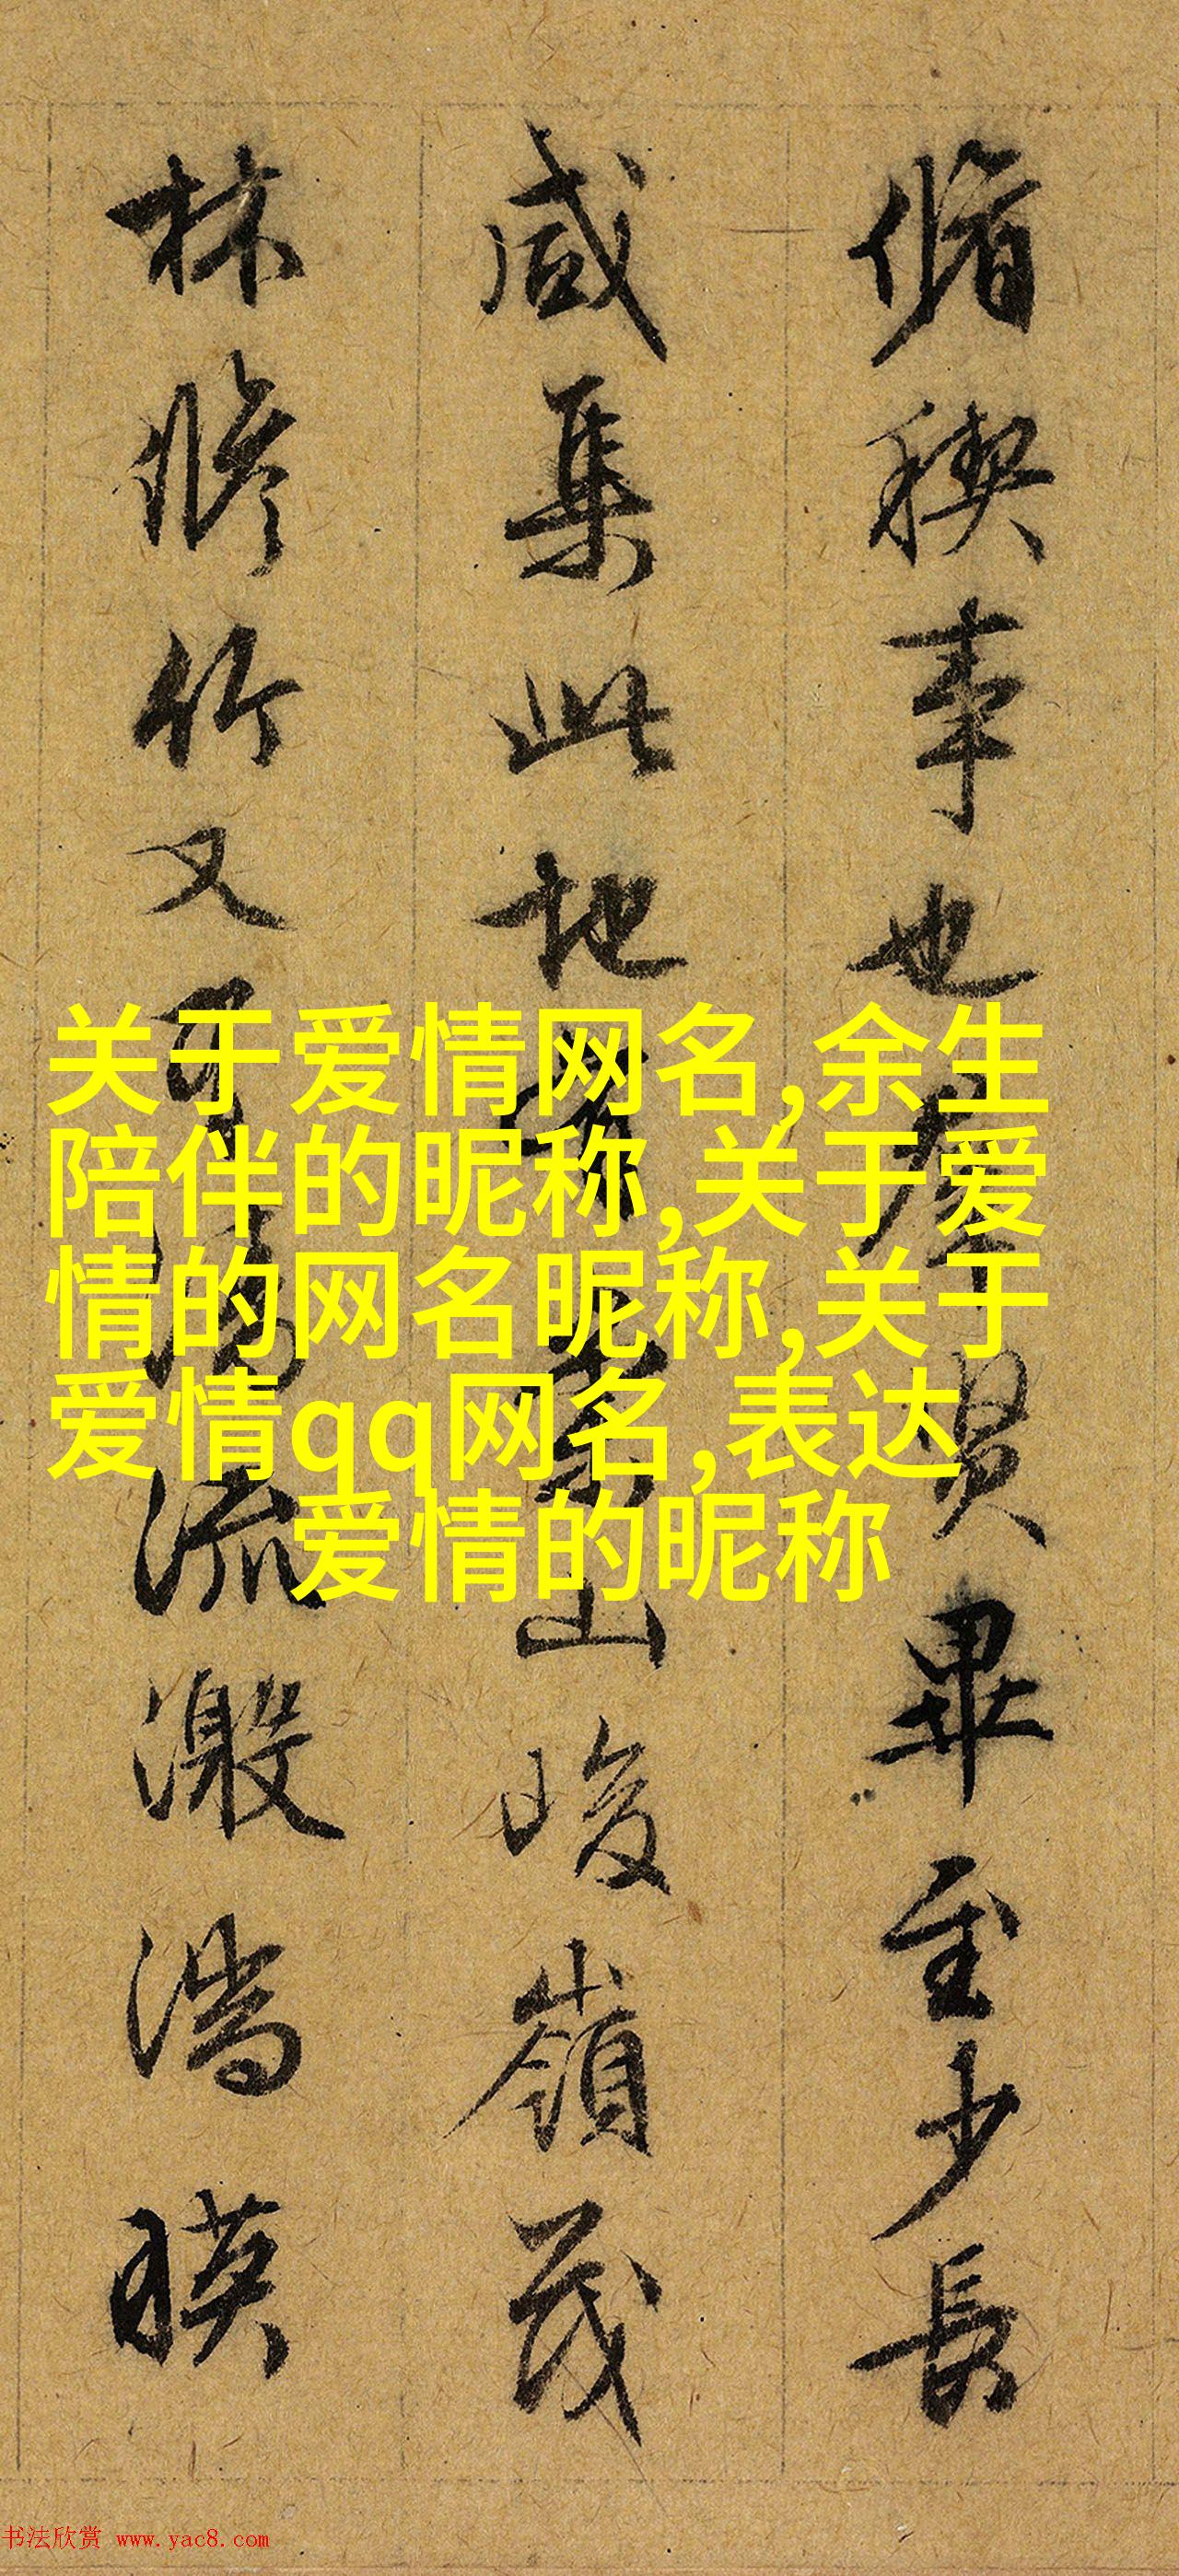 脩稧事也羣賢畢至少長
咸集此地有崇山峻嶺茂
林脩竹又有清流激湍暎
关于爱情网名,余生
陪伴的昵称,关于爱
情的网名昵称,关于
爱情qq网名,表达
爱情的昵称
书法欣赏 www.yac8.com